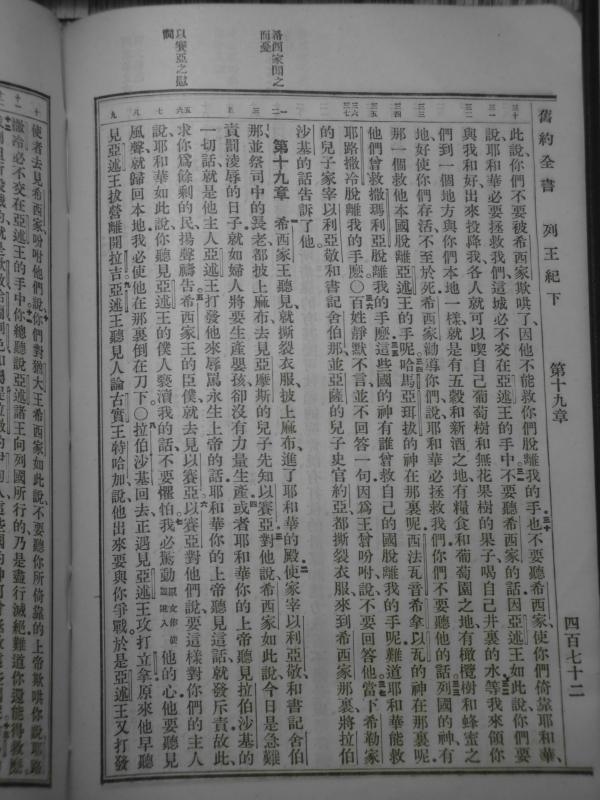 舊約全書　列王紀下　第十九章　四百七十二
三十
三一
三二
三三
三四
三五
三六
三七
一
二
三
四
五
六
七
八
九
此說、你們不要被希西家欺哄了、因他不能救你們脫離我的手、也不要聽希西家、使你們倚靠耶和華、
說、耶和華必要拯救我們、這城必不交在亞述王的手中、不要聽希西家的話、因亞述王如此說、你們要
與我和好、出來投降我、各人就可以喫自己葡萄樹和無花果樹的果子、喝自己井裏的水、等我來領你
們到一個地方與你們本地一樣、就是有五穀和新酒之地、有糧食和葡萄園之地、有橄欖樹和蜂蜜之
地、好使你們存活、不至於死、希西家勸導你們說、耶和華必拯救我們、你們不要聽他的話、列國的神、有
那一個救他本國脫離亞述王的手呢、哈馬亞珥拔的神在那裏呢、西法瓦音希拿以瓦的神在那裏呢、
他們曾救撒瑪利亞脫離我的手麼、這些國的神、有誰曾救自己的國脫離我的手呢、難道耶和華能救
耶路撒冷脫離我的手麼○百姓靜默不言、並不回答一句、因爲王曾吩咐說、不要回答他、當下希勒家
的兒子家宰以利亞敬、和書記舍伯那、並亞薩的兒子史官約亞、都撕裂衣服、來到希西家那裏、將拉伯
沙基的話告訴了他、
第十九章　希西家王聽見、就撕裂衣服、披上麻布、進了耶和華的殿、使家宰以利亞敬、和書記舍伯
那、並祭司中的長老、都披上麻布、去見亞摩斯的兒子先知以賽亞、對他說、希西家如此說、今日是急難
責罰凌辱的日子、就如婦人將要生產嬰孩、卻沒有力量生產、或者耶和華你的上帝聽見拉伯沙基的
一切話、就是他主人亞述王打發他來辱罵永生上帝的話、耶和華你的上帝聽見這話、就發斥責、故此
求你爲餘剩的民、揚聲禱告、希西家王的臣僕就去見以賽亞、以賽亞對他們說、要這樣對你們的主人
說、耶和華如此說、你聽見亞述王的僕人褻瀆我的話、不要懼怕、我必驚動他的心、他要聽見
風聲、就歸回本地、我必使他在那裏倒在刀下○拉伯沙基回去、正遇見亞述王攻打立拿、原來他早聽
見亞述王拔營離開拉吉、亞述王聽見人論古實王特哈加說、他出來要與你爭戰、於是亞述王又打發
十
十一
使者去見希西家、吩咐他們說、你們對猶大王希西家如此說、不要聽你所倚靠的上帝欺哄你說、耶路
撒冷必不交在亞述王的手中、你總聽說亞述諸王向列國所行的、乃是盡行滅絕、難道你還能得救麼
希西家聞之
而憂
以賽亞之慰